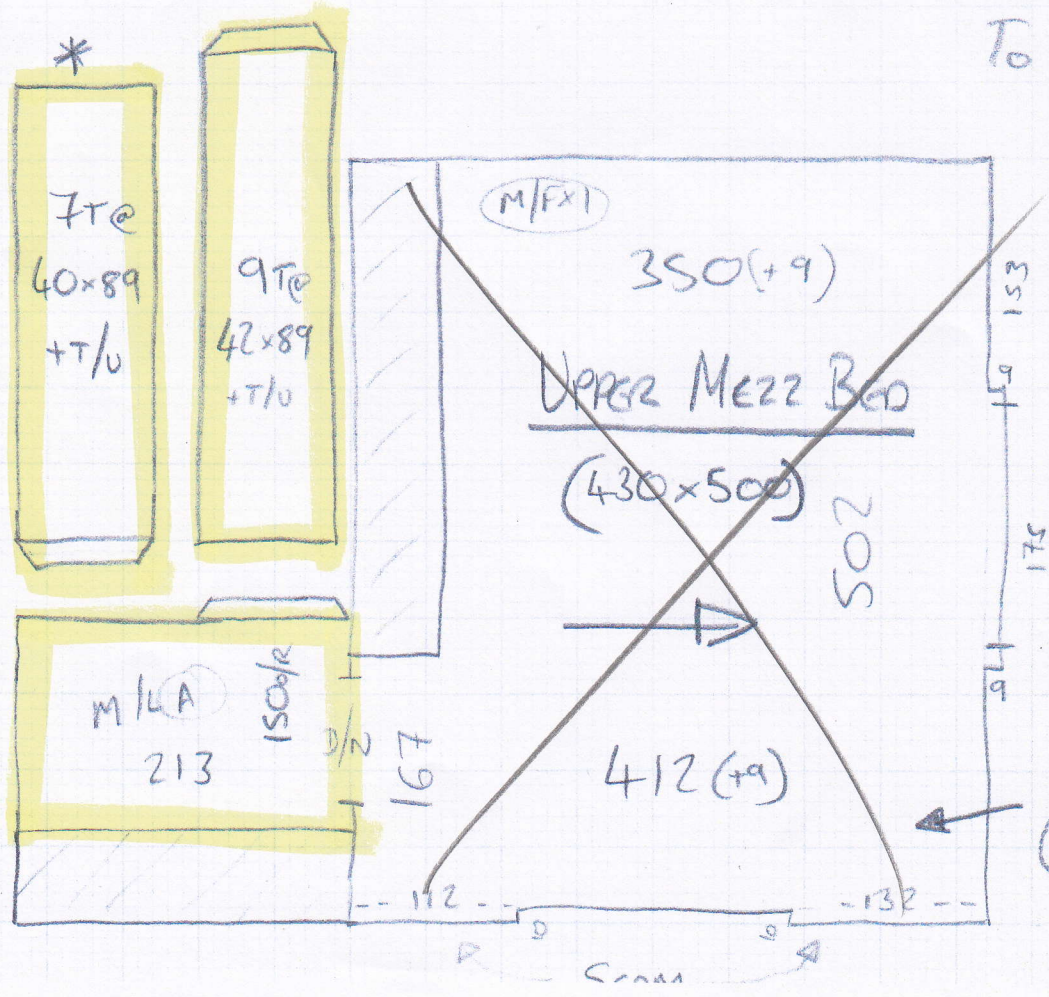 To
*
7T@
40x89
+T/U
9T@
42x89
+T/U
M/Fx1
350(+9)
UPPER MEZZ BED
(430x500)
502
153
19
175
9
M/LA
213
150o/R
D/N
167
412(+9)
112
132
9
9